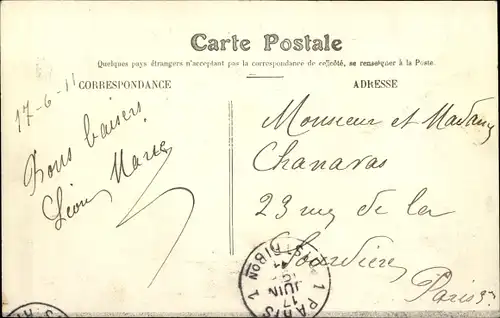 Carte Postale
Quelques pays étrangers n'acceptant pas la correspondance de ce côté, se renseigner à la Poste.
CORRESPONDANCE
ADRESSE
17-6-11
baisers
Léon Marse
Monsieur et Madame
Chanavas
23 rue de la
Sourdière
Paris
PARIS
17
JUIN